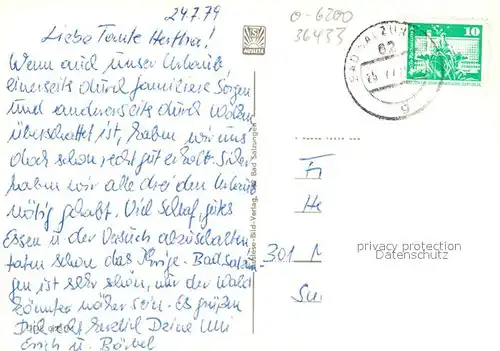 24.7.79
Liebe Tante Hertha!
Wenn auch unser Urlaub
einerseits durch familiäre Sorgen
und andererseits durch
überschattet ist, haben wir uns
doch schon recht gut erholt. Sicher
haben wir alle drei den Urlaub
nötig gehabt. Viel Schlaf, gutes
Essen u der Versuch abzuschalten
taten schon das Ihrige. Bad Salzun-
gen ist sehr schön, nur der Wald
könnte näher sein. Es grüßen
Dich recht herzlich Deine
Erich u. Bärbel
AUSLESE
Auslese-Bild-Verlag, 62 Bad Salzungen
0-6200
36433
BAD SALZUN
62
g
10
Fr
He
301 M
privacy protection
Datenschutz